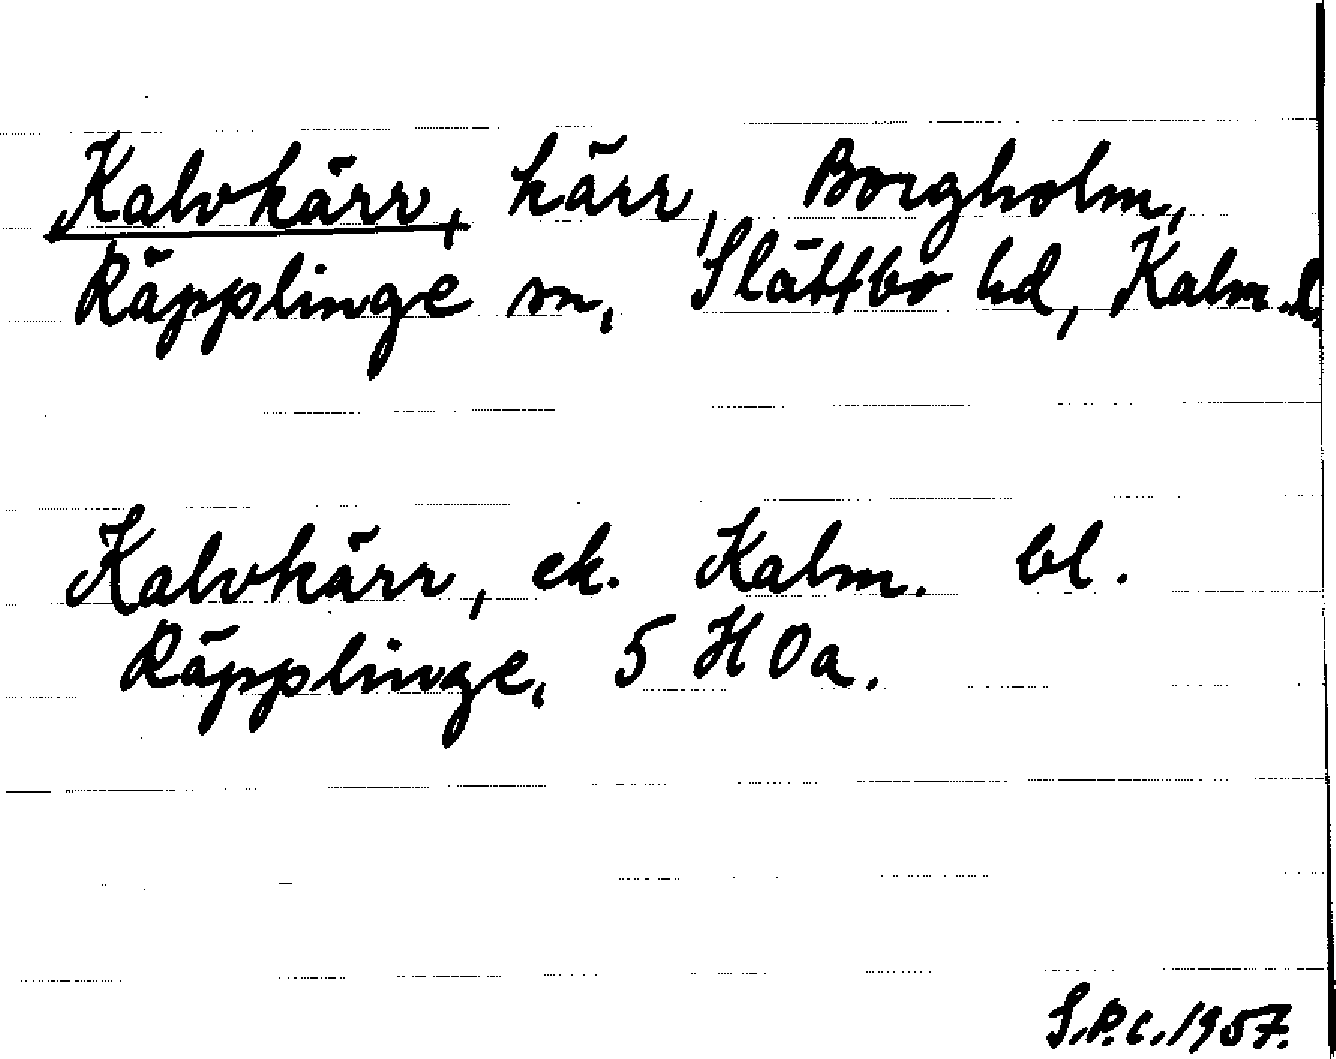 Kalvkärr, kärr, Borgholm,
Räpplinge sn, Slättbo hd, Kalm. l.
Kalvkärr, ek. Kalm. bl.
Räpplinge, 5 H 0a.
S.P.C. 1957.